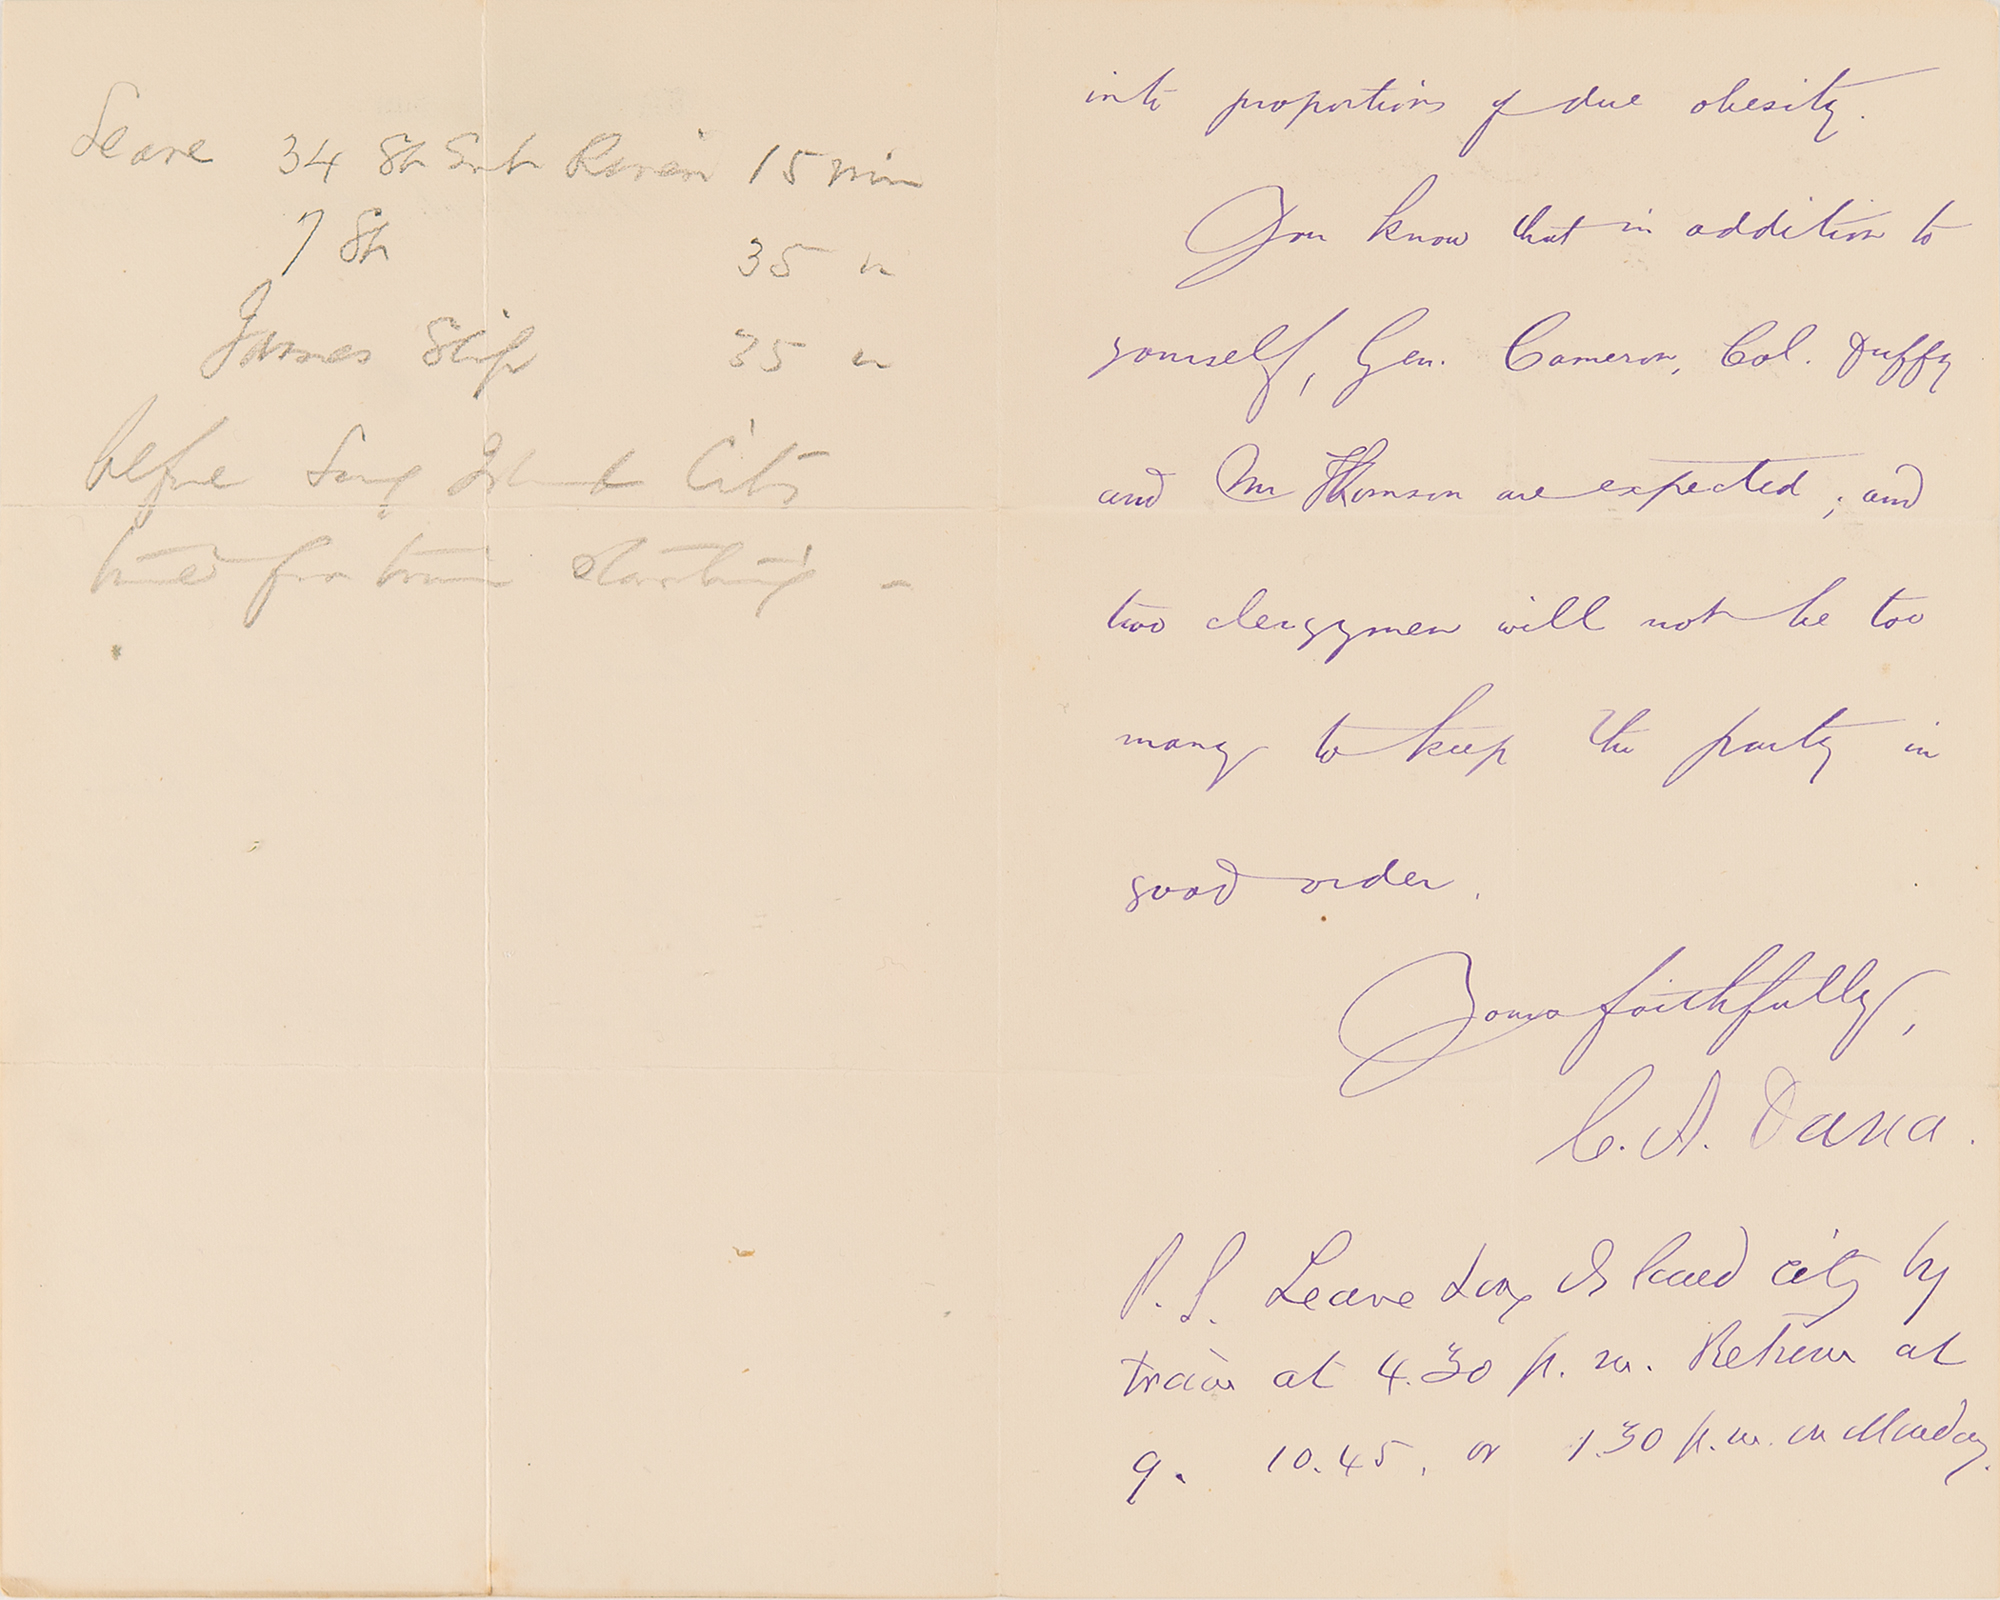 Leave 34 St East River 15 min
7 St 35 "
James Slip 35 "
before Long Island City
time for train starting -
into proportions of due obesity.
You know that in addition to
yourself, Gen. Cameron, Col. Duffy
and Mr Thomson are expected; and
two clergymen will not be too
many to keep the party in
good order.
Yours faithfully,
C. A. Dana.
P.S. Leave Long Island City by
train at 4.30 p.m. Return at
9. 10.45, or 1.30 p.m. on Monday.